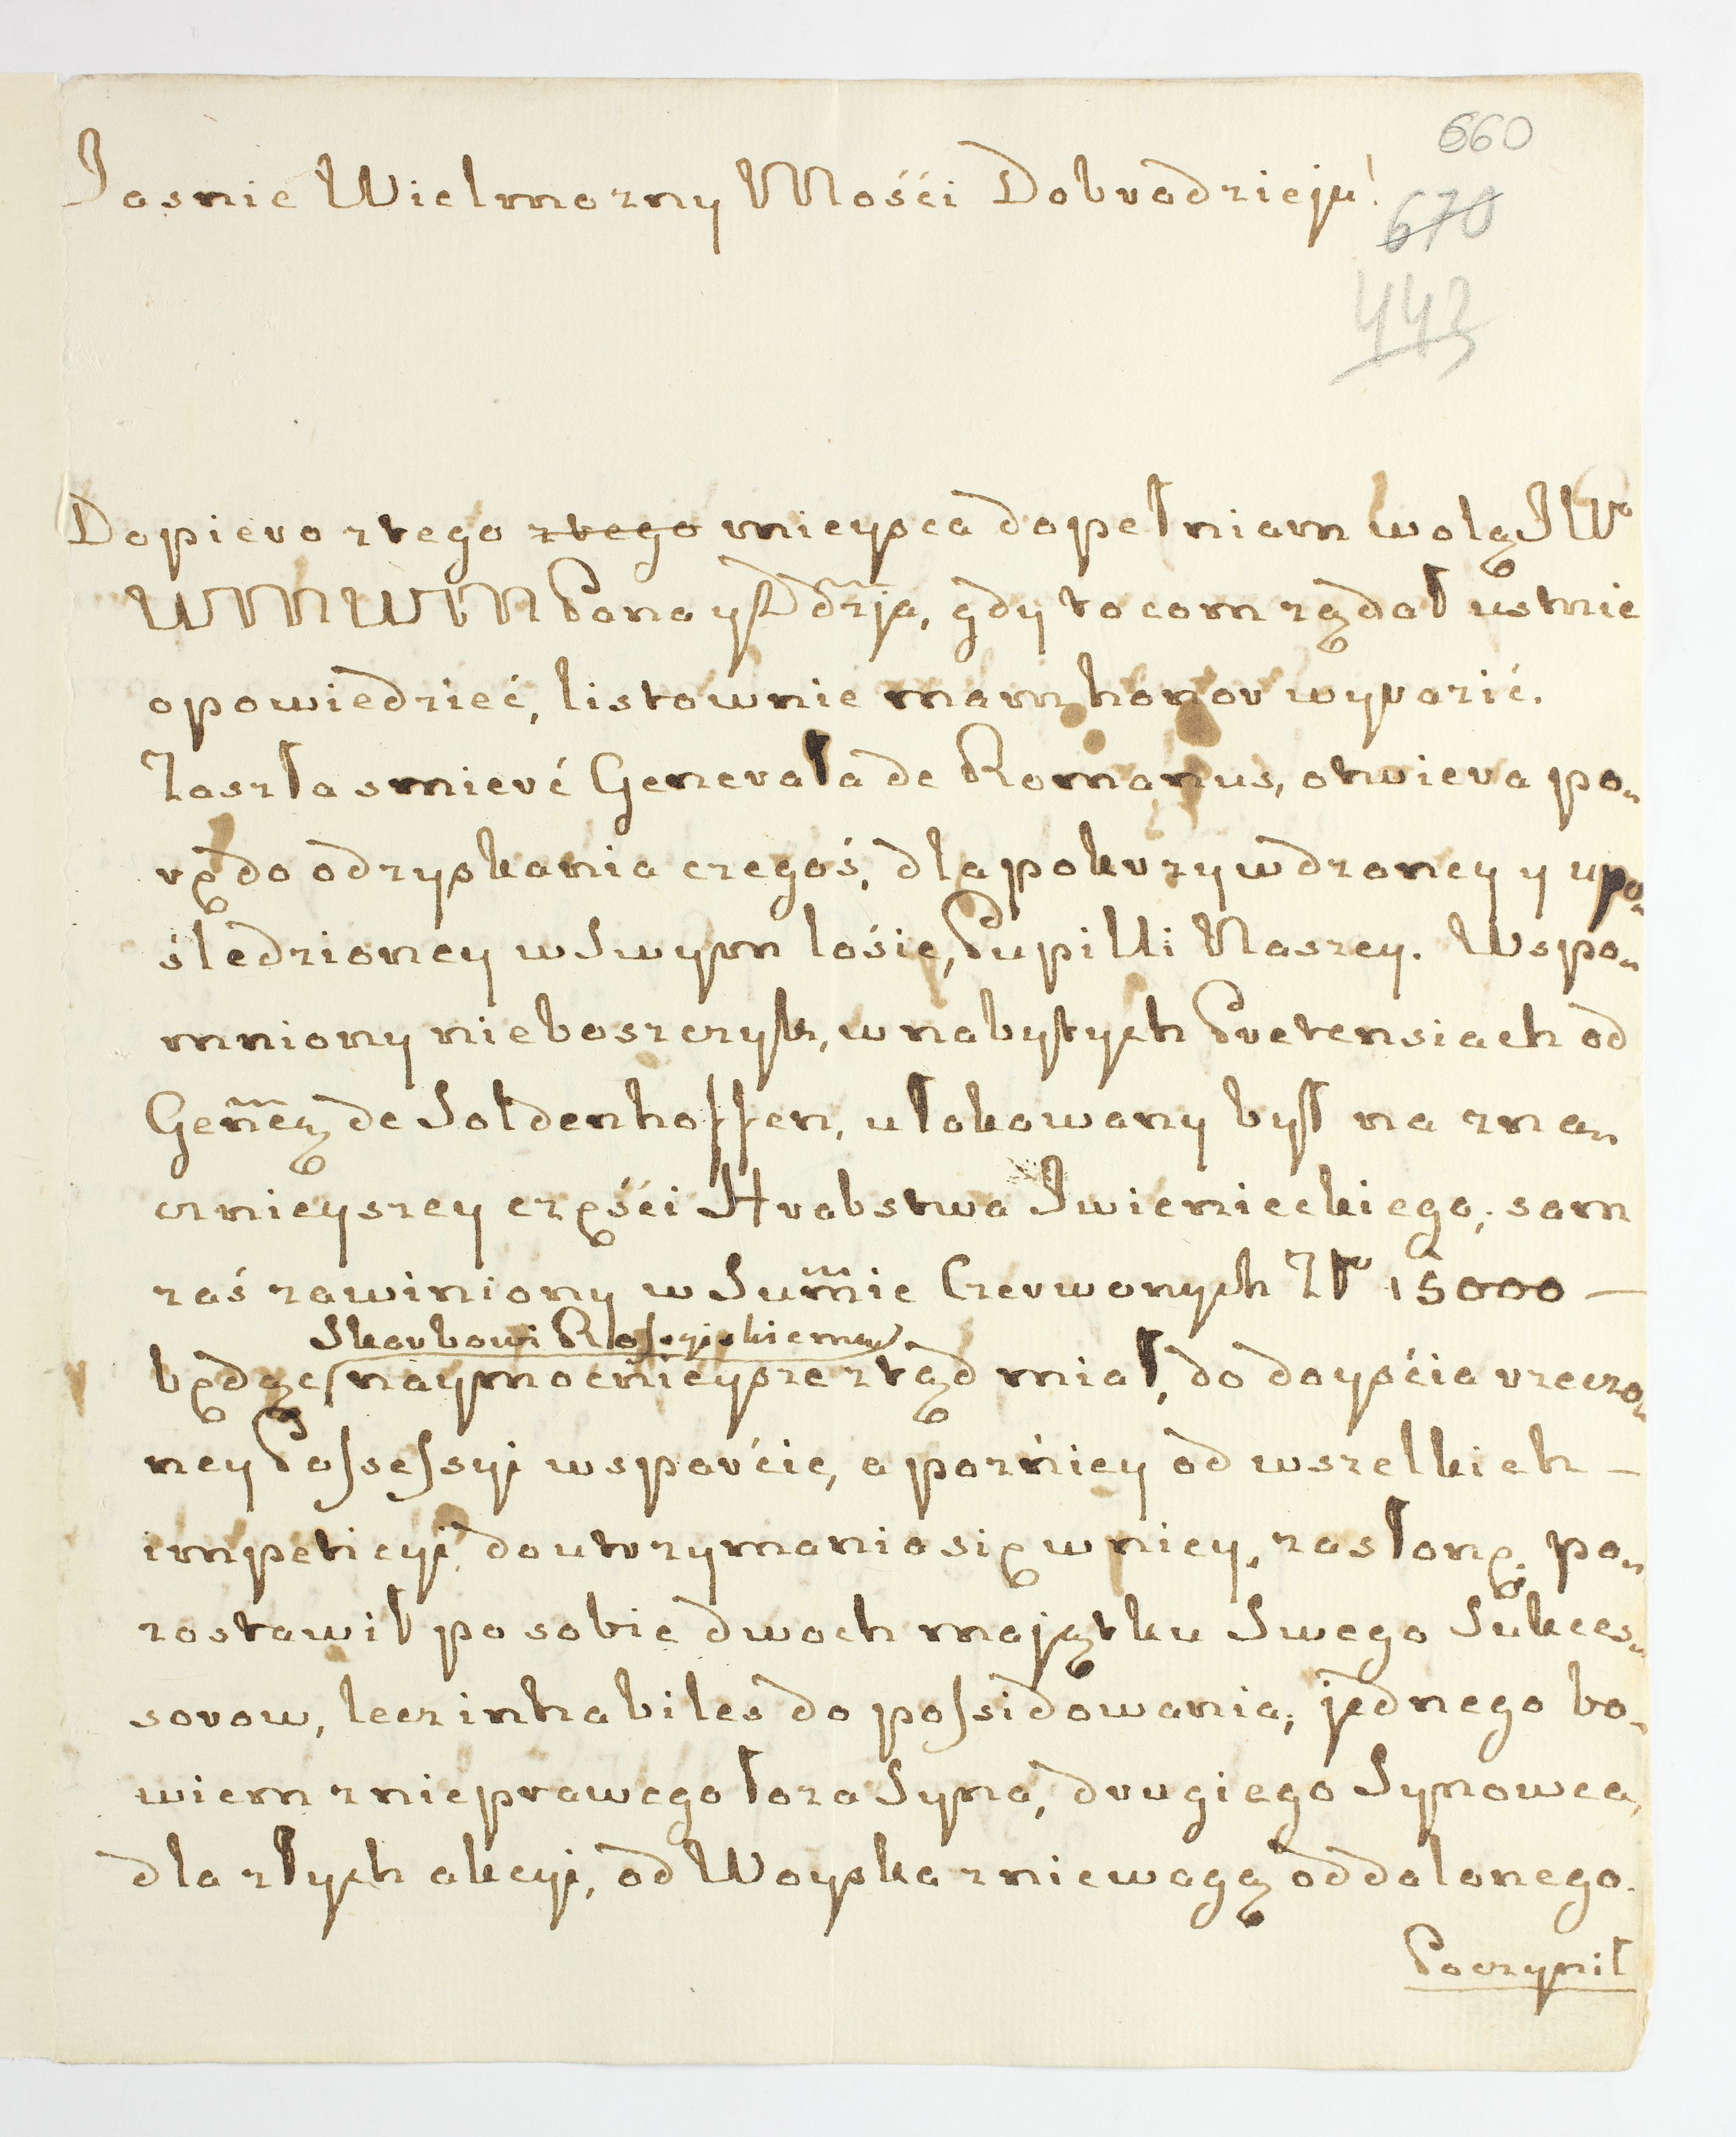 660
Jasnie Wielmozny Mości Dobrodzieju!
670
442
Dopiero ztego ztego mieysca dopełniam wolą JWo
WMWM Pana y Ddzja, gdy to com ządał ustnie
opowiedzieć, listownie mam honor wyrazić.
Zaszła smierć Generała de Romanus, otwiera po„
rę do odzyskania czegoś, dla pokrzywdzoney y upo„
śledzioney w Swym lośie, Pupilli Naszey. Wspo„
mniony nieboszczyk, w nabytych Pretensiach od
Geñeą de Soldenhoffen, ulokowany był na zna„
cznieyszey częśći Hrabstwa Iwienieckiego; sam
zaś zawiniony w Sum̃ie Czerwonych Zło 15000 —
Skarbowi Rossyiskiemu
będąc, naymocnieysze ztąd miał, do doyśćia rzeczo„
ney Possessyi wsparćie, a pozńiey od wszelkich —
impeticyi, do utrzymania się w niey, zasłonę; po„
zostawił po sobie dwoch mająthu Swego Sukces„
sorow, lecz inhabiles do possidowania; jednego bo„
wiem z nieprawego łoza Syna, drugiego Synowca,
dla złych akcyi, od Woyska zniewagą oddalonego.
Poczynił